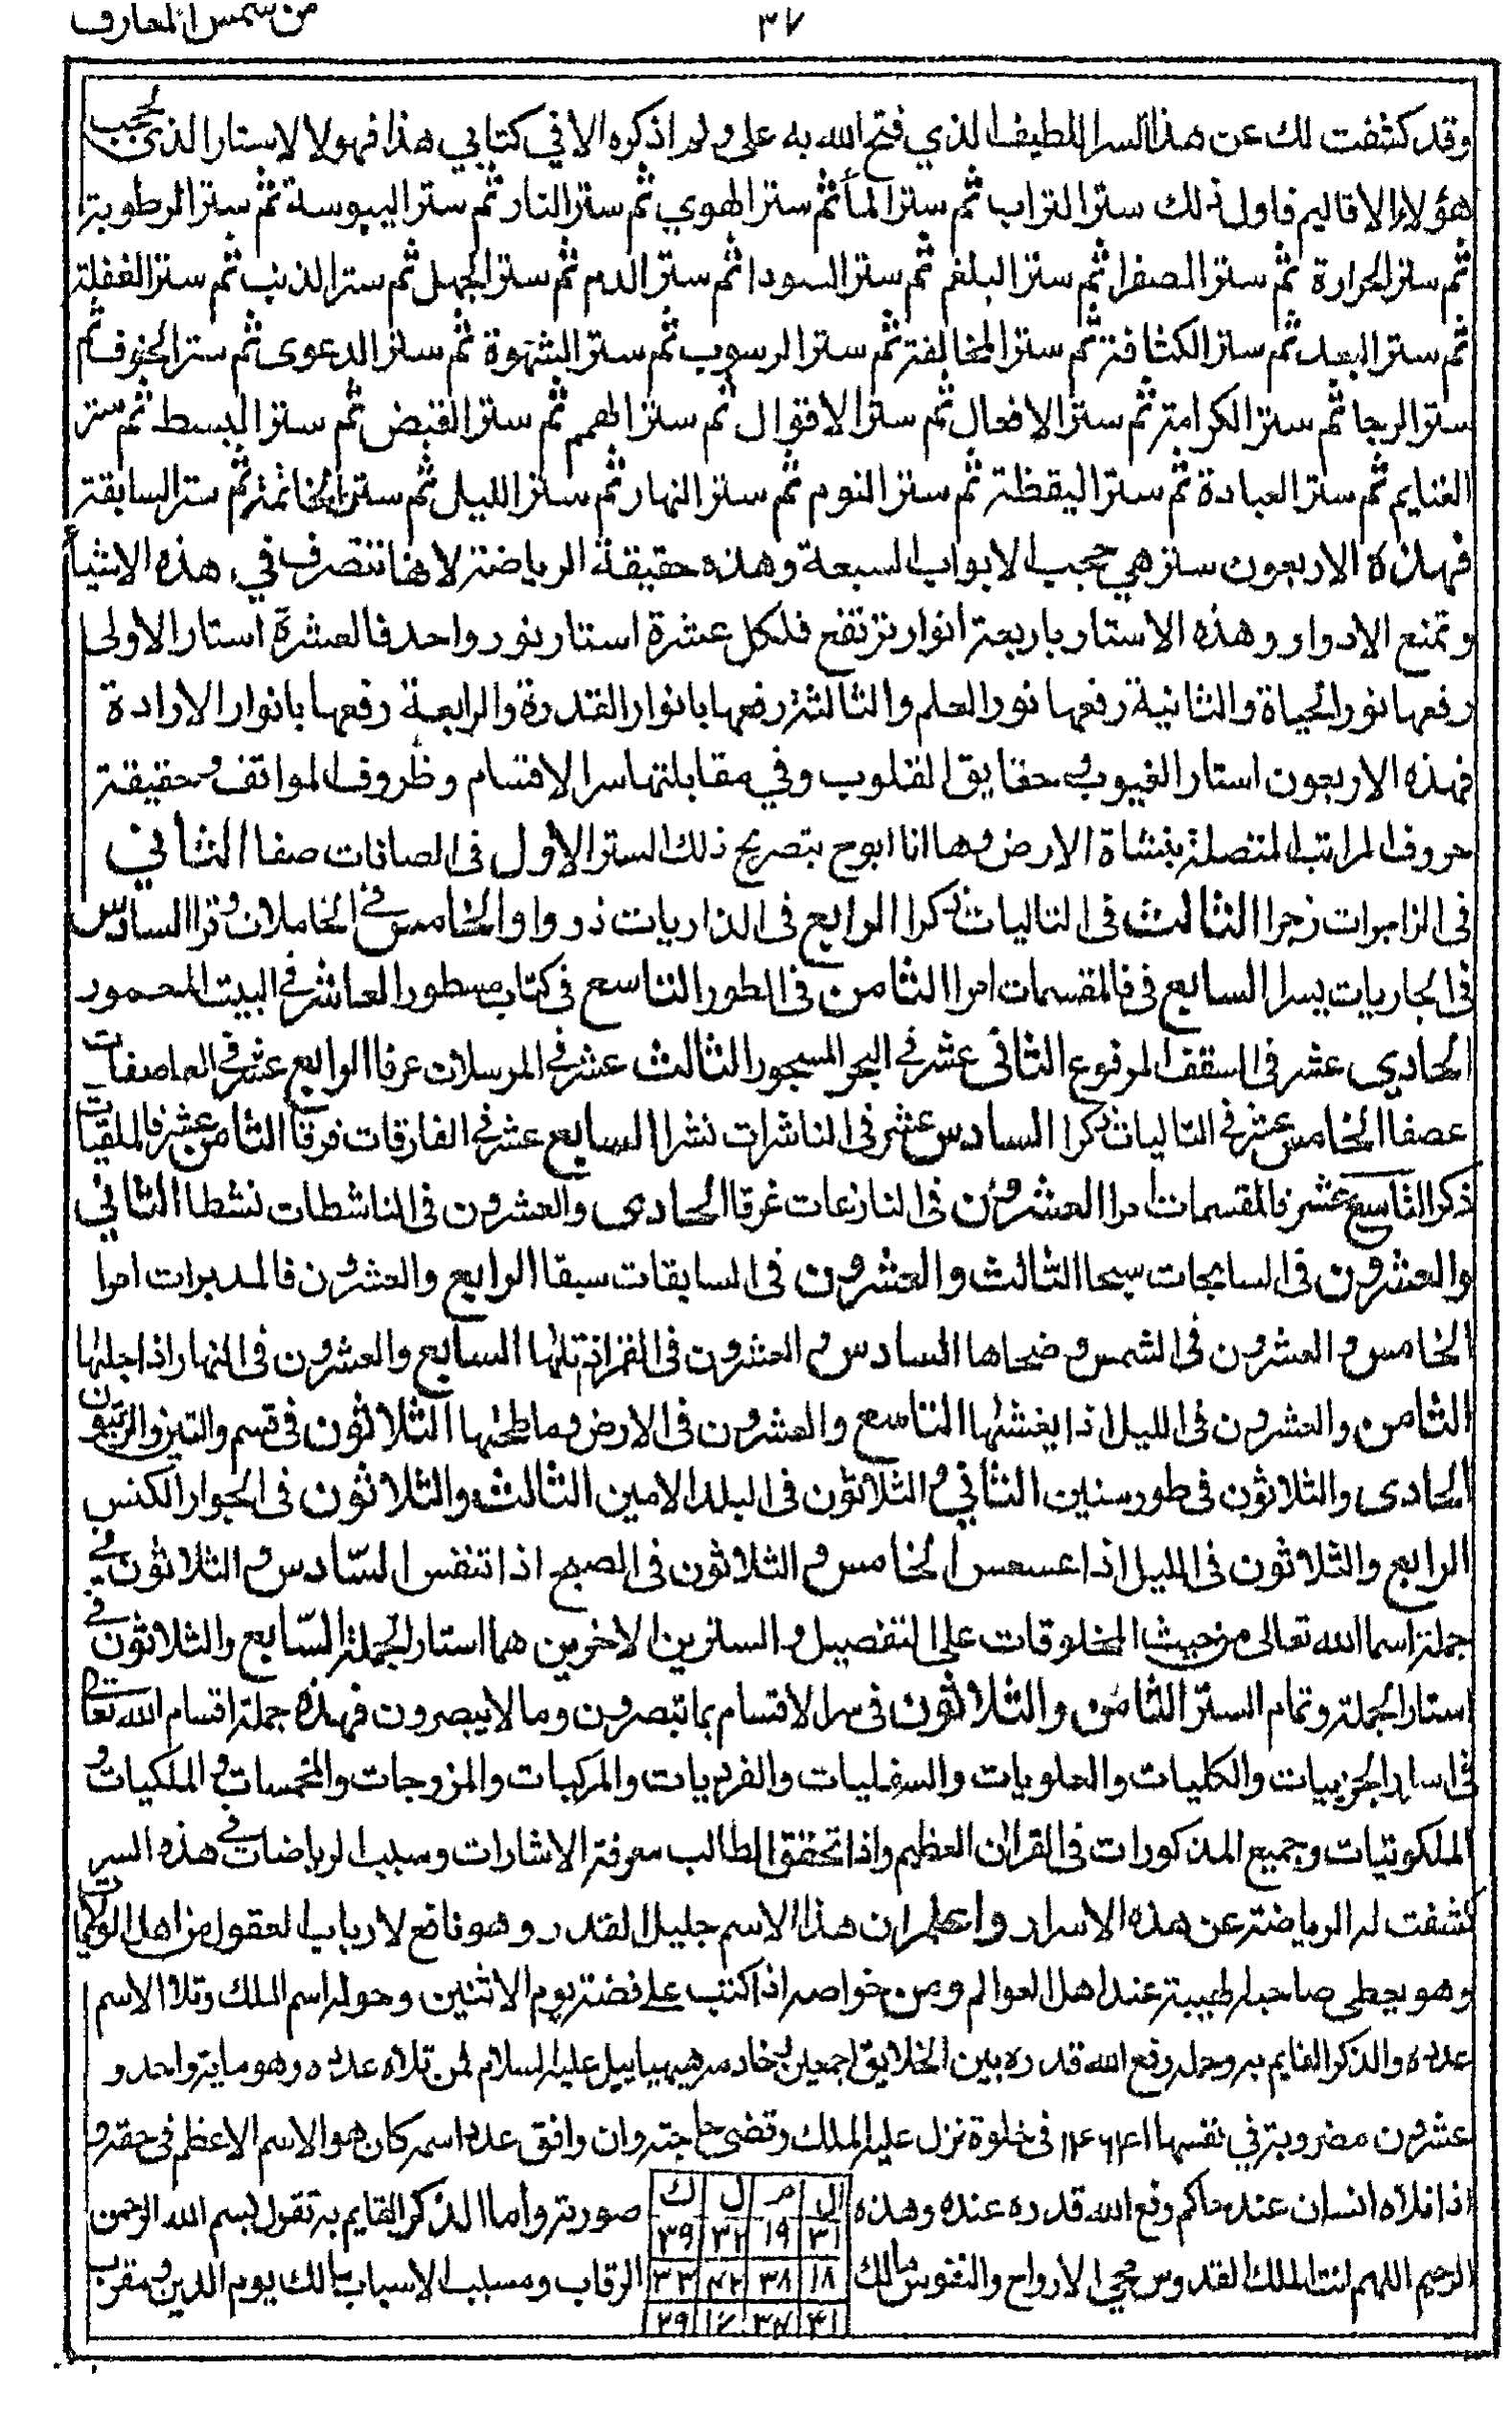 من شمس المعارف
٣٧
وقد كشفت لك عن هذا السر اللطيف الذي فتح الله به على ولم اذكره الا في كتابي هذا فهولا لاستار الذى تحجب
هؤلاء الاقاليم فاول ذلك ستر التراب ثم ستر الماء ثم ستر الهوي ثم ستر النار ثم ستر اليبوسة ثم ستر الرطوبة
ثم ستر الحرارة ثم ستر الصفرا ثم ستر البلغم ثم ستر السودا ثم ستر الدم ثم ستر الجهل ثم ستر الذنب ثم ستر الغفلة
ثم ستر البعد ثم ستر الكثافة ثم ستر المخالفة ثم ستر الرسوب ثم ستر الشهوة ثم ستر الدعوى ثم ستر الخوف ثم
ستر الرجا ثم ستر الكرامة ثم ستر الافعال ثم ستر الاقوال ثم ستر الهمم ثم ستر القبض ثم ستر البسط ثم ستر
الغنايم ثم ستر العبادة ثم ستر اليقظة ثم ستر النوم ثم ستر النهار ثم ستر الليل ثم ستر الخاتمة ثم ستر السابقة
فهذه الاربعون ستر هي حجب الابواب السبعة وهذه حقيقة الرياضة لانها تتصرف في هذه الاشيأ
وتمنع الادوار وهذه الاستار باربعة انوار ترتفع فلكل عشرة استار نور واحد فالعشرة استار الاولى
رفعها نور الحياة والثانية رفعها نور العلم والثالثة رفعها بانوار القدرة والرابعة رفعها بانوار الارادة
فهذه الاربعون استار الغيوب وحقايق القلوب وفي مقابلتها سر الاقسام وظروف المواقف وحقيقة
حروف المراتب المتصلة بنشاة الارض وها انا ابوح بتصريح ذلك الستر الاول فى الصافات صفا الثاني
فى الزاجرات زجرا الثالث فى التاليات ذكرا الرابع فى الذاريات ذروا والخامس في الحاملات وقرا السادس
فى الجاريات يسرا السابع فى فالمقسمات امرا الثامن فى الطور التاسع فى كتاب مسطور العاشر في البيت المعمور
الحادي عشر فى السقف المرفوع الثانى عشر في البحر المسجور الثالث عشر في المرسلات عرفا الرابع عشر في العاصفات
عصفا الخامس عشر في التاليات ذكرا السادس عشر فى الناشرات نشرا السابع عشر في الفارقات فرقا الثامن عشر فالملقيات
ذكرا التاسع عشر فالمقسمات امرا العشرون فى النازعات غرقا الحادى والعشرون فى الناشطات نشطا الثاني
والعشرون فى السابحات سبحا الثالث والعشرون فى السابقات سبقا الرابع والعشرون فالمدبرات امرا
الخامس والعشرون فى الشمس وضحاها السادس والعشرون فى القمر اذا تلها السابع والعشرون فى النهار اذا جلها
الثامن والعشرون فى الليل اذا يغشها التاسع والعشرون فى الارض وما طحها الثلاثون فى قسم والتين والزيتون
الحادى والثلاثون فى طور سنين الثاني والثلاثون فى البلد الامين الثالث والثلاثون فى الجوار الكنس
الرابع والثلاثون فى الليل اذا عسعس الخامس والثلاثون فى الصبح اذا تنفس السادس والثلاثون في
جملة اسما الله تعالى من حيث المخلوقات على التفصيل والسترين الاخرين هما استار الجملة السابع والثلاثون في
استار الجملة وتمام الستر الثامن والثلاثون فى سر الاقسام بما تبصرون وما لا يبصرون فهذه جملة اقسام الله تعالى
فى اسار الجزييات والكليات والعلويات والسفليات والفرديات والمركبات والمزوجات والمخمسات والملكيات و
الملكوتيات وجميع المذكورات فى القران العظيم واذا تحقق الطالب معرفة الاشارات وسبب الرياضات في هذه السر
كشفت له الرياضة عن هذه الاسرار واعلم ان هذا الاسم جليل القدر وهو نافع لارباب العقول من اهل الولايات
وهو يعطى صاحبه طيبة عند اهل العوالم ومن خواصه اذا كتب على فضة يوم الاثنين وحوله اسم الملك وتلا الاسم
عدده والذكر القايم به وحمله رفع الله قدره بين الخلايق اجمعين خادمه هيهياييل عليه السلام لمن تلاه عدده وهو ماية واحد و
عشرون مضروبة في نفسها ١٤٦٤١ فى خلوة نزل عليه الملك وقضى حاجته وان وافق عدد اسمه كان هو الاسم الاعظم فى حقه و
اذا تلاه انسان عند حاكم رفع الله قدره عنده وهذه صورته واما الذكر القايم به تقول بسم الله الرحمن
ال م ل ك
٣١ ١٩ ٣٢ ٣٩
الرحيم اللهم انت الملك القدوس محي الارواح والنفوس مالك الرقاب ومسبب الاسباب مالك يوم الدين ومقرب
١٨ ٣٨ ٤٢ ٣٣